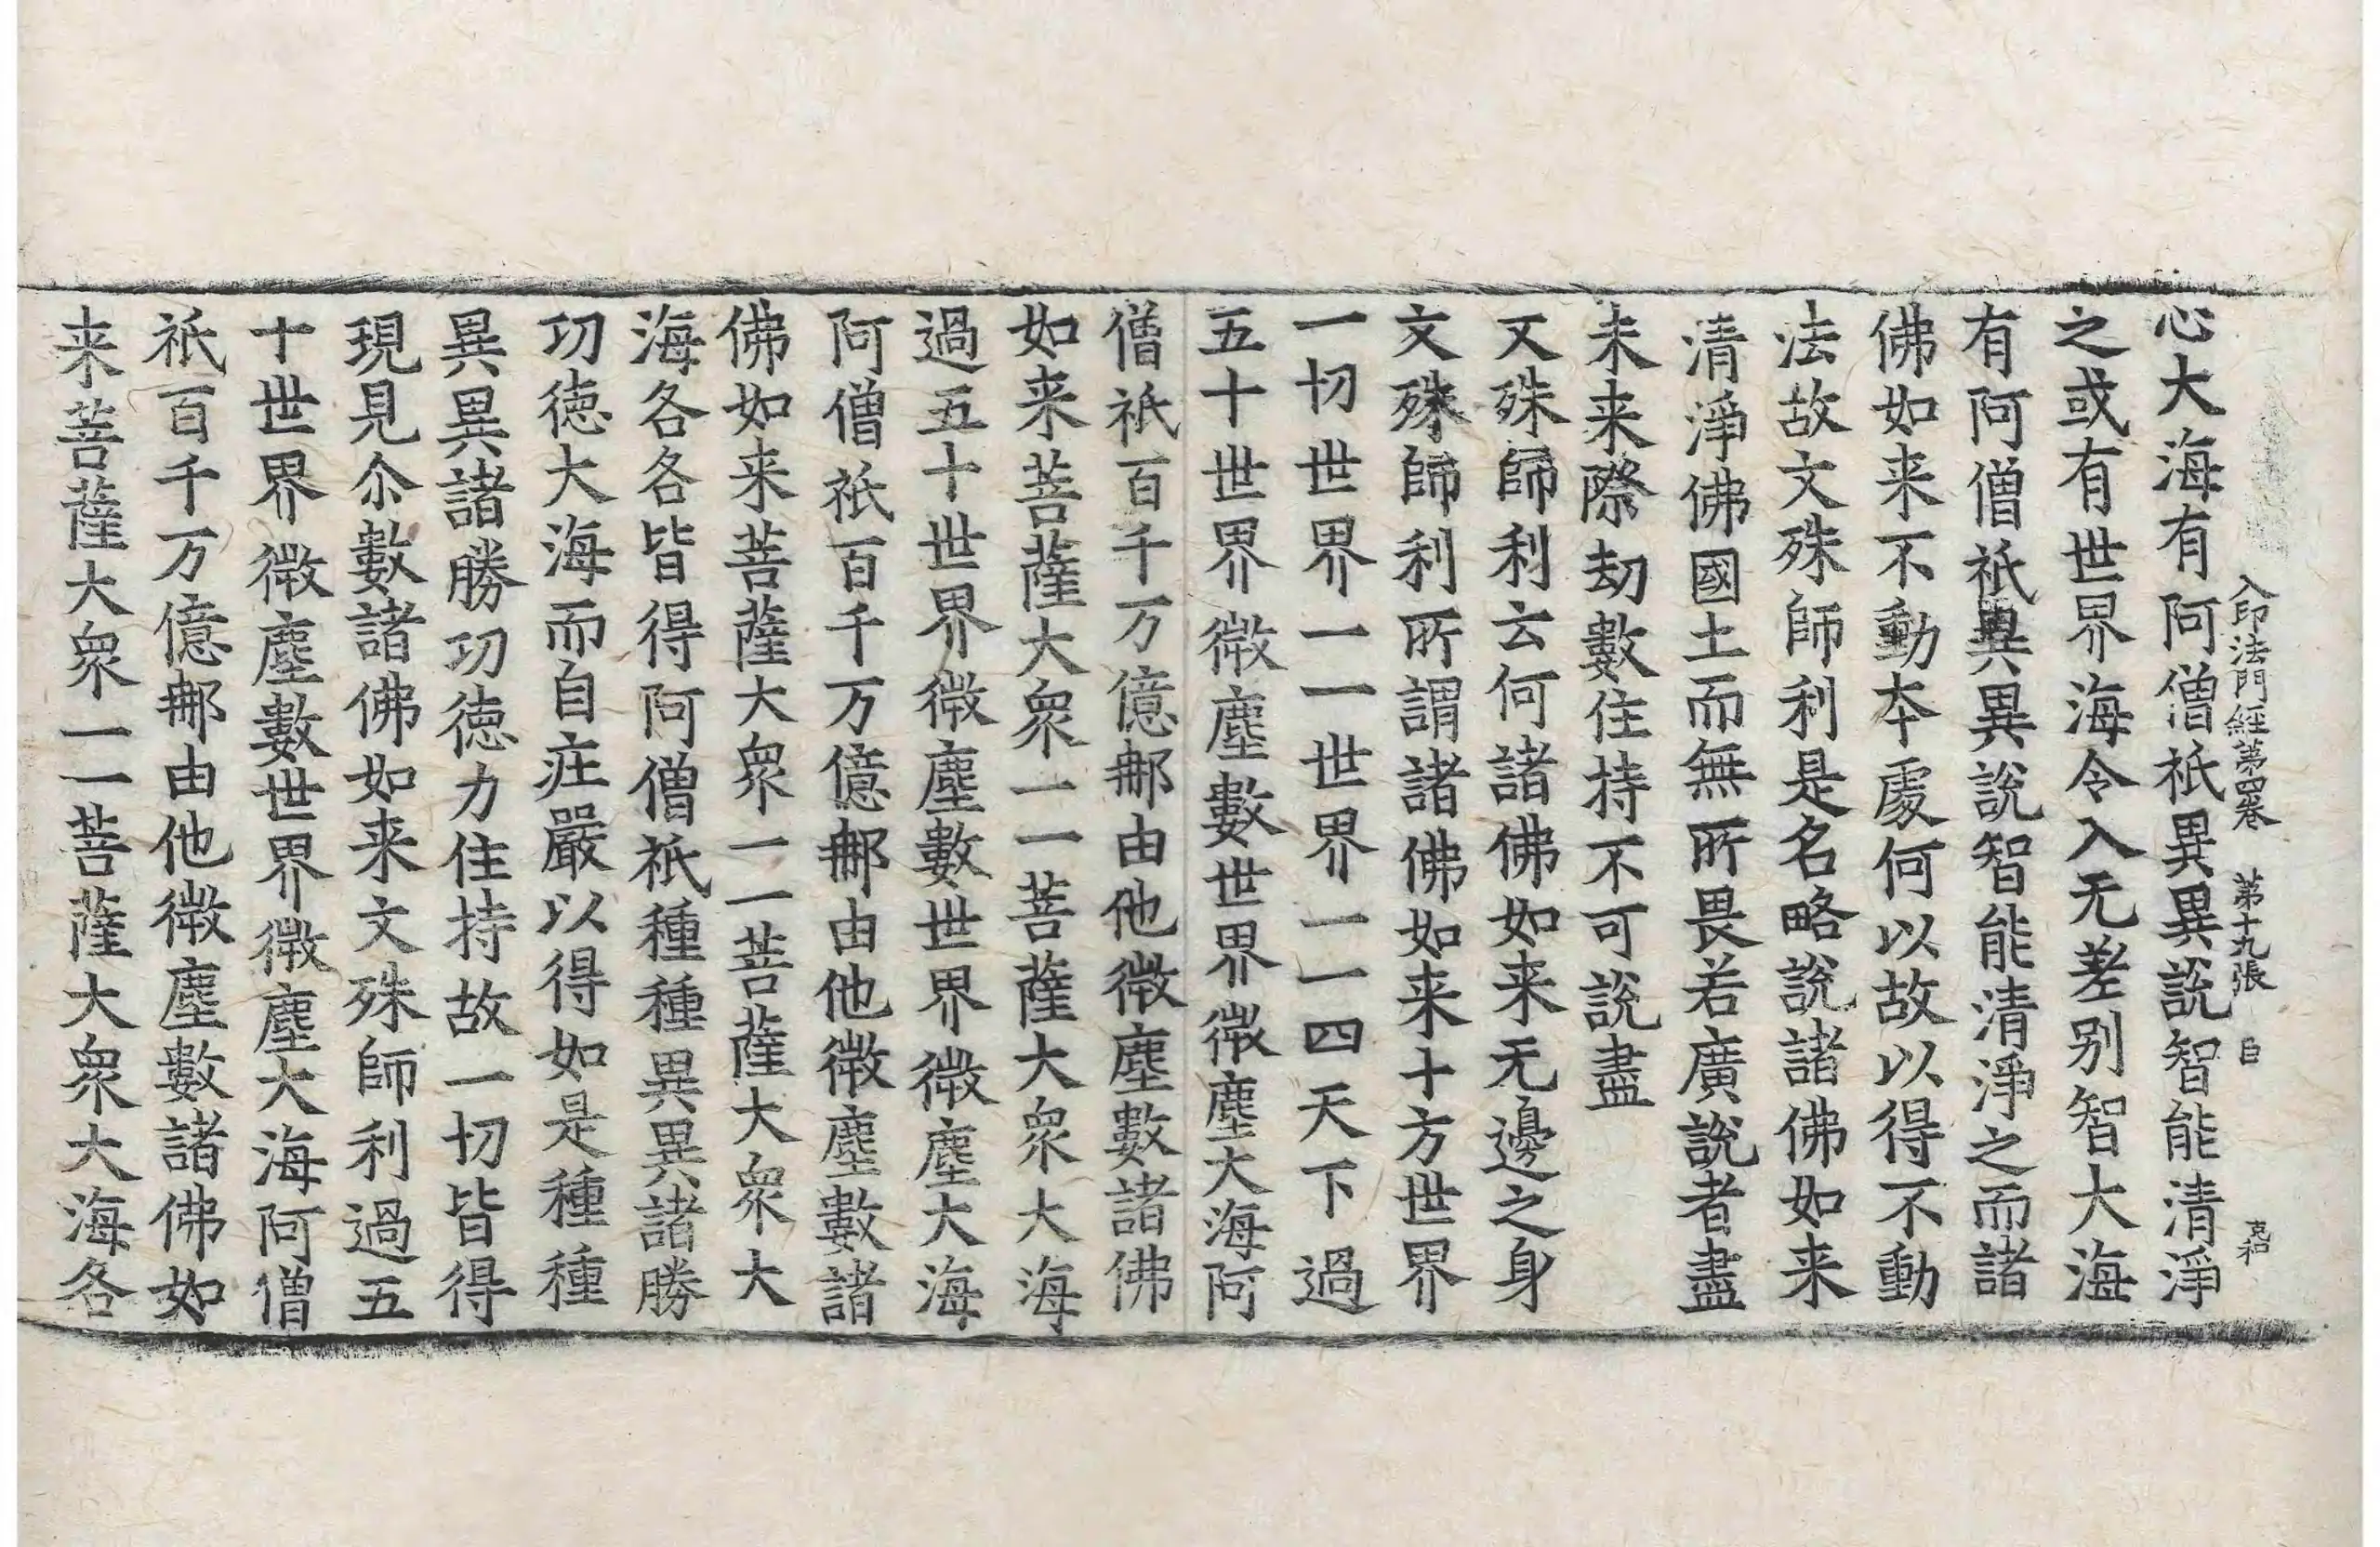 入印法門經第四卷 第十九張 自 克和
心大海有阿僧祇異異說智能清淨
之或有世界海令入无差別智大海
有阿僧祇異異說智能清淨之而諸
佛如来不動本處何以故以得不動
法故文殊師利是名略說諸佛如来
清淨佛國土而無所畏若廣說者盡
未来際劫數住持不可說盡
文殊師利云何諸佛如来无邊之身
文殊師利所謂諸佛如来十方世界
一切世界一一世界一一四天下過
五十世界微塵數世界微塵大海阿
僧祇百千万億那由他微塵數諸佛
如来菩薩大衆一一菩薩大衆大海
過五十世界微塵數世界微塵大海
阿僧祇百千万億那由他微塵數諸
佛如来菩薩大衆一一菩薩大衆大
海各各皆得阿僧祇種種異異諸勝
功徳大海而自庄嚴以得如是種種
異異諸勝功徳力住持故一切皆得
現見尒數諸佛如来文殊師利過五
十世界微塵數世界微塵大海阿僧
祇百千万億那由他微塵數諸佛如
来菩薩大衆一一菩薩大衆大海各